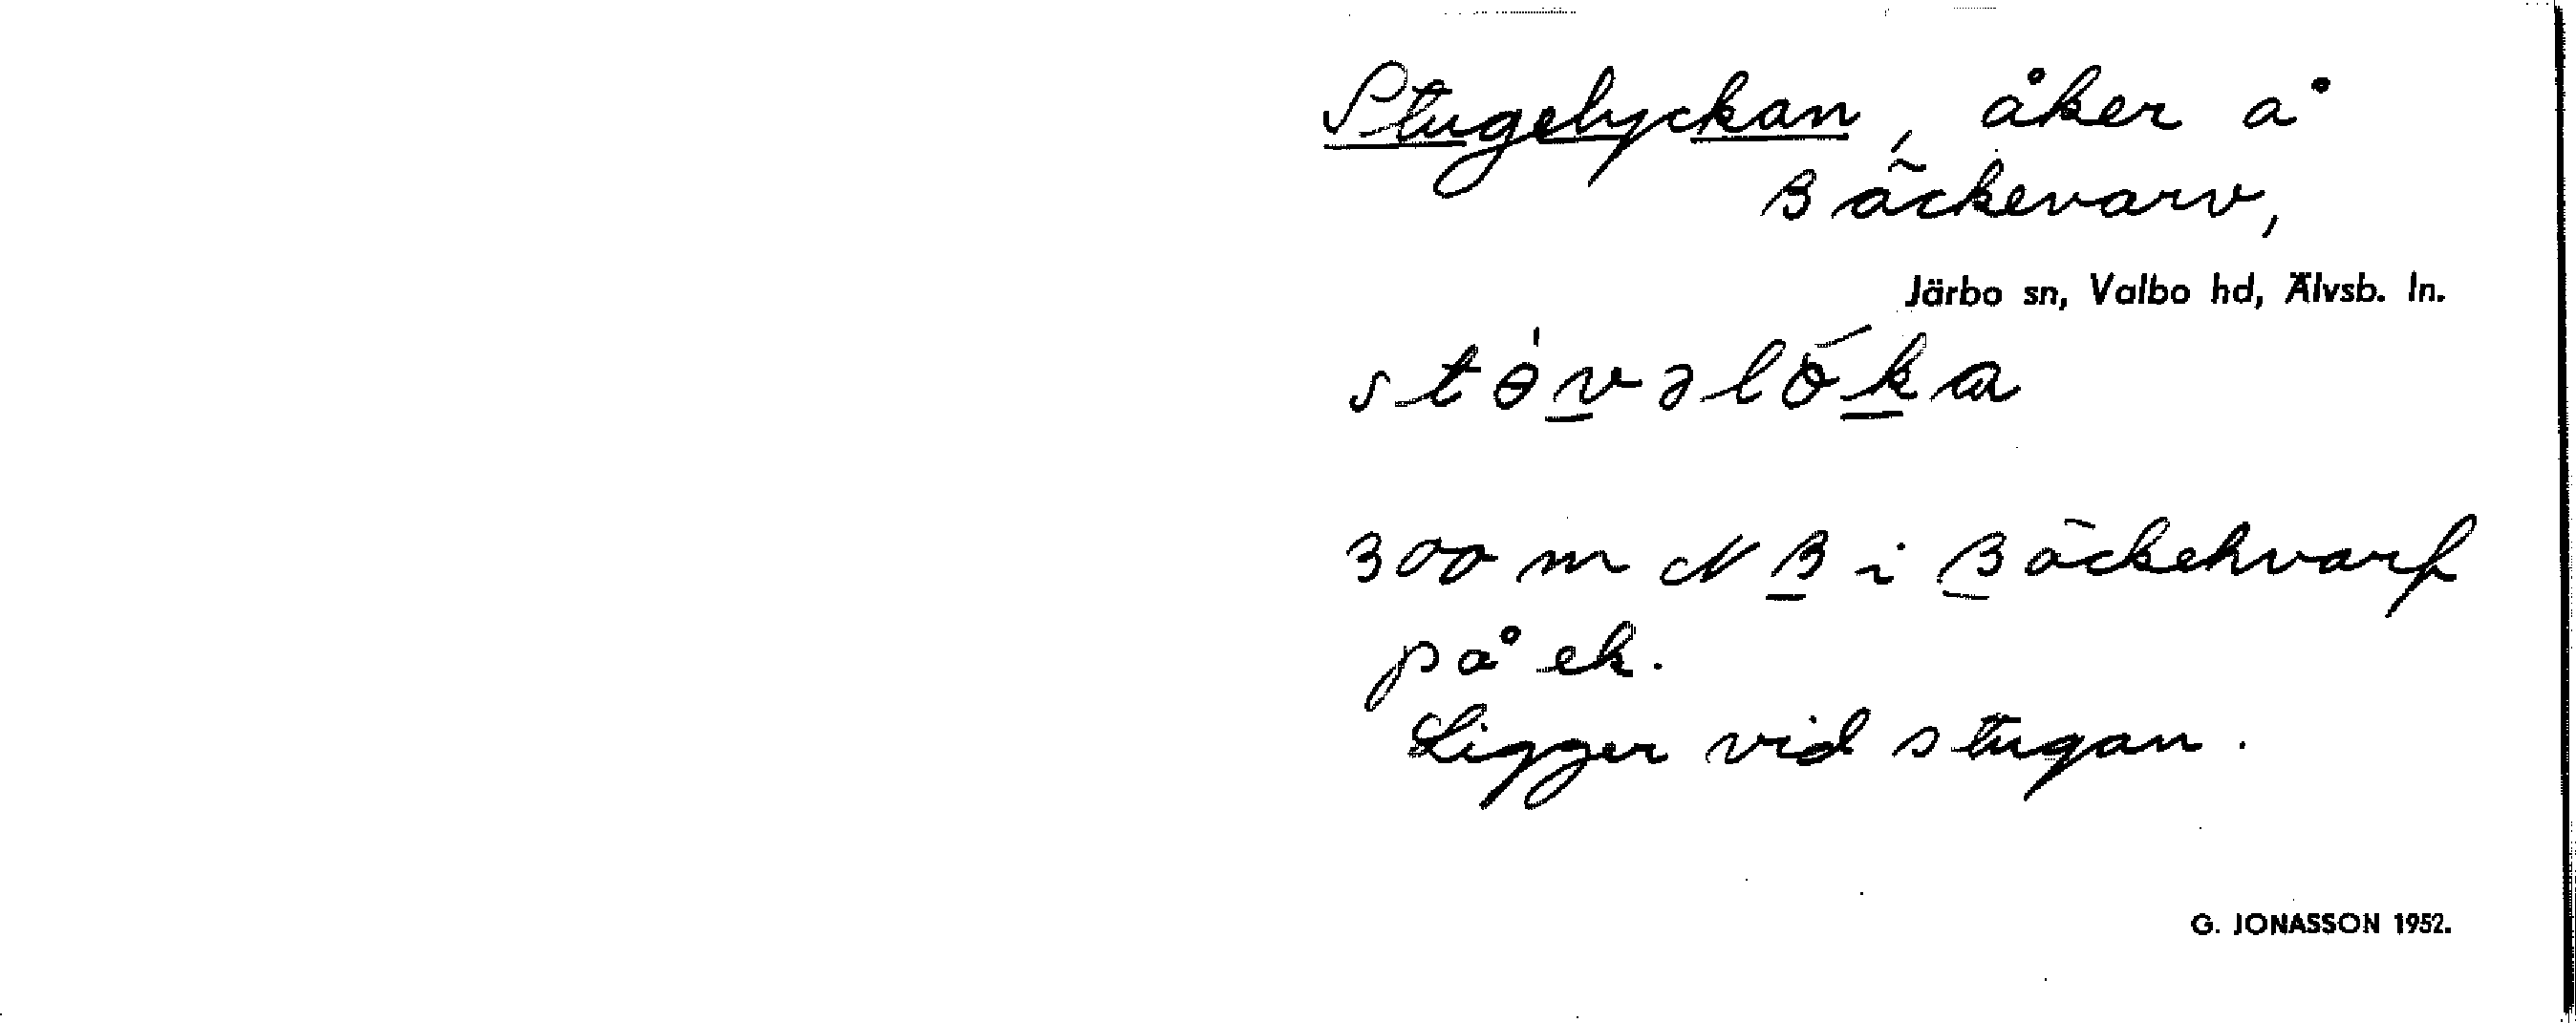 Stugelyckan, åker å
Bäckevarv,
Järbo sn, Valbo hd, Älvsb. ln.
300 m N B i Bäckehvarf
på ek.
Ligger vid stugan.
G. JONASSON 1952.